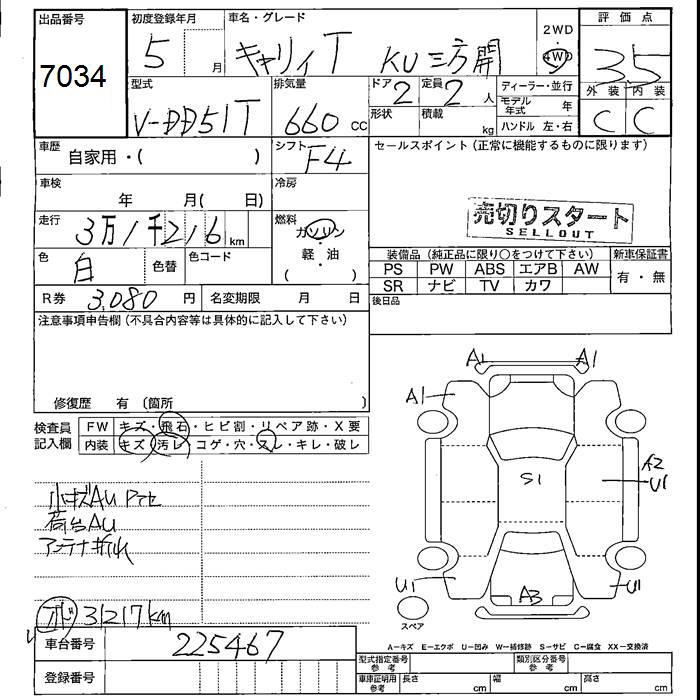 出品番号 初度登録年月 車名・グレード 2WD 評価点
7034 5 月 キャリィT KU三方開 4WD 3.5
型式 排気量 ドア 定員 ディーラー・並行 外装 内装
V-DD51T 660 CC 2 2 人 モデル年式 年 C C
形状 積載 kg ハンドル 左・右
車歴 自家用・( ) シフト F4 セールスポイント(正常に機能するものに限ります)
車検 年 月( 日) 冷房
走行 3万1千216 km 燃料 ガソリン・軽・油 ( )
売切りスタート
SELLOUT
色 白 色替 色コード
装備品(純正品に限り○をつけて下さい) 新車保証書
PS PW ABS エアB AW 有・無
SR ナビ TV カワ
R券 3,080 円 名変期限 月 日 後日品
注意事項申告欄(不具合内容等は具体的に記入して下さい)
修復歴 有 〔箇所 〕
検査員記入欄 FW キズ・飛石・ヒビ割・リペア跡・X要
内装 キズ・汚レ・コゲ・穴・スレ・キレ・破レ
A1 A1
A1
S1
A2
U1
U1 A3 U1
スペア
小キズAU
荷台AU
アンテナ折れ
31217km
車台番号 225467
登録番号
A−キズ E−エクボ U−凹み W−補修跡 S−サビ C−腐食 XX−交換済
型式指定番号 参考 類別区分番号 参考
車庫証明用 参考 長さ cm 幅 cm 高さ cm